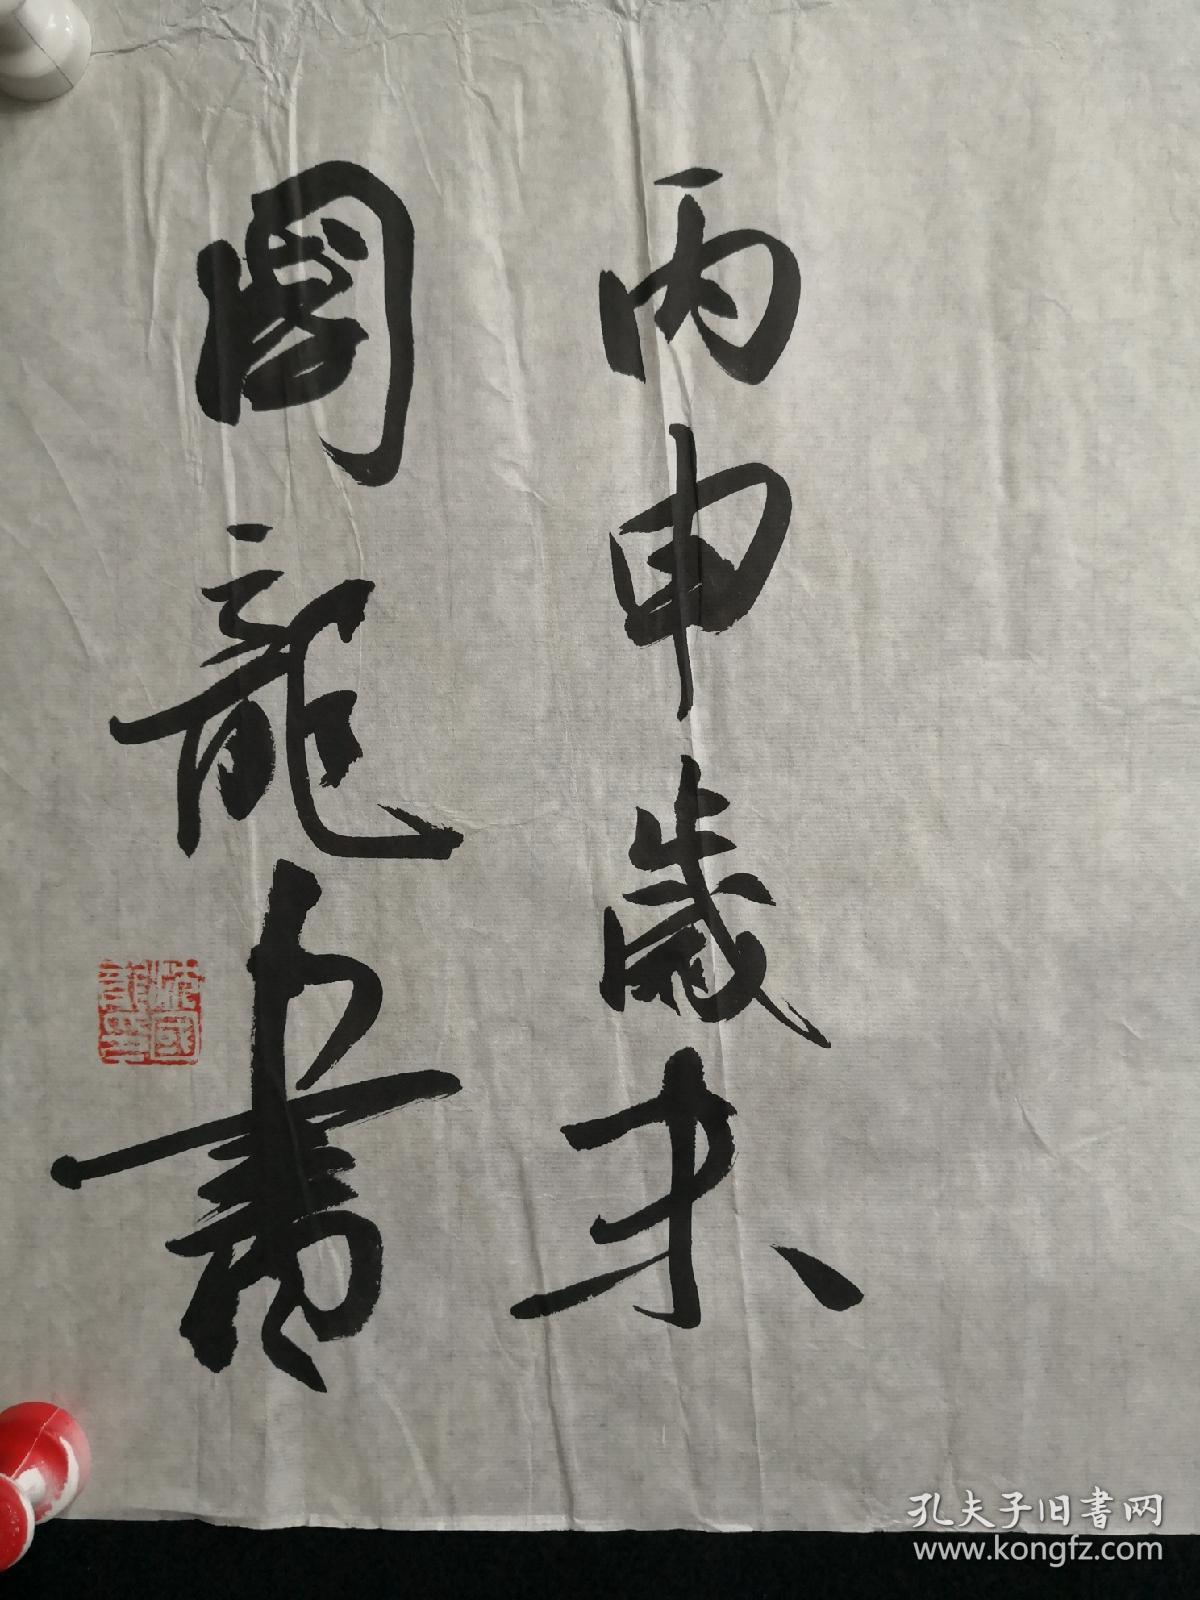 丙申歲末
國龍書
孔夫子旧書网
www.kongfz.com